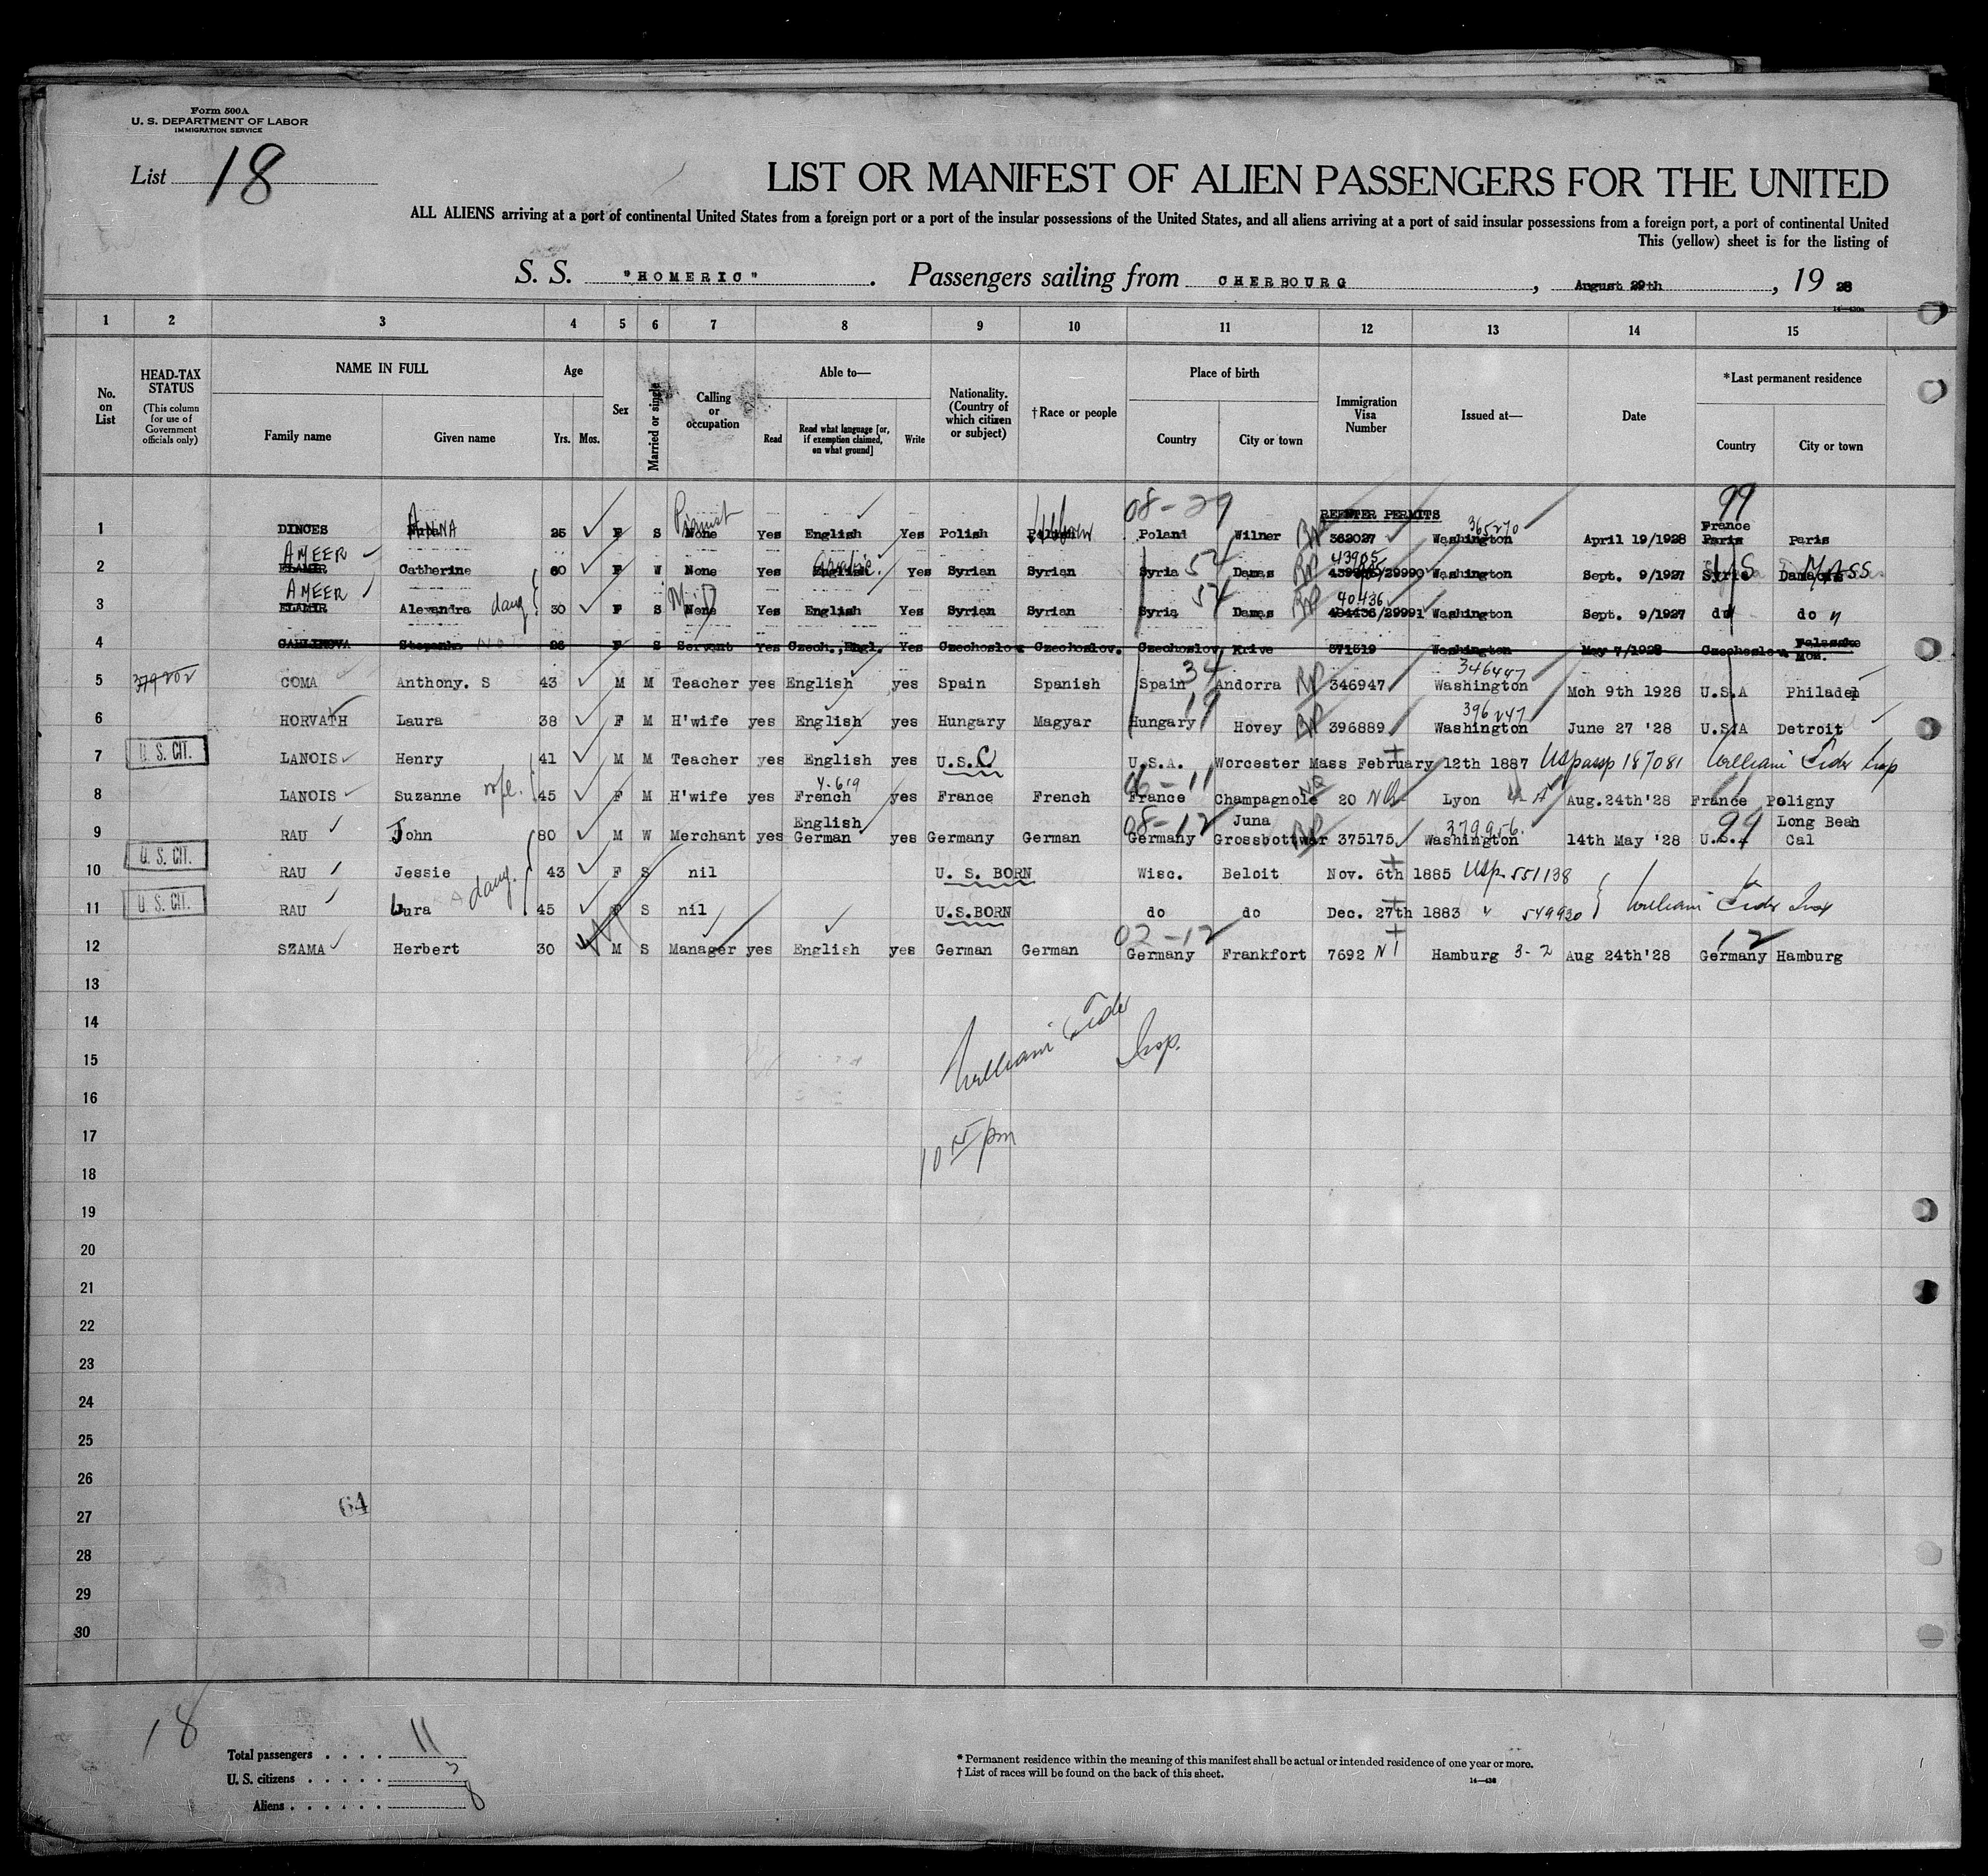 Form 500A
U. S. DEPARTMENT OF LABOR
IMMIGRATION SERVICE
List 18
LIST OR MANIFEST OF ALIEN PASSENGERS FOR THE UNITED
ALL ALIENS arriving at a port of continental United States from a foreign port or a port of the insular possessions of the United States, and all aliens arriving at a port of said insular possessions from a foreign port, a port of continental United
This (yellow) sheet is for the listing of
S. S. "HOMERIC". Passengers sailing from CHERBOURG, August 29th, 19 28
1 2 3 4 5 6 7 8 9 10 11 12 13 14 15
No. on List
HEAD-TAX STATUS (This column for use of Government officials only)
NAME IN FULL Family name Given name
Age Yrs. Mos.
Sex
Married or single
Calling or occupation
Able to— Read Read what language [or, if exemption claimed, on what ground] Write
Nationality. (Country of which citizen or subject)
†Race or people
Place of birth Country City or town
Immigration Visa Number
Issued at—
Date
*Last permanent residence Country City or town
08-29 REENTER PERMITS 99
Pianist 365270 France
1 DINCES ANNA 25 F S None Yes English Yes Polish Poland Wilner 362027 Washington April 19/1928 Paris Paris
AMEER Arabic 54 RP 43905 US Mass.
2 ELAMIR Catherine 60 F W None Yes English Yes Syrian Syrian Syria Damas Washington Sept. 9/1927 Syria Damas
AMEER MD 54 RP 40436
3 ELAMIR Alexandra daug 30 F S None Yes English Yes Syrian Syrian Syria Damas 404436/29991 Washington Sept. 9/1927 do do
4 Stepanka 26 F S Servant Yes Czech.,Engl. Yes Czechoslov. Czechoslov. Czechoslov. Krive 371519 Washington May 7/1928 Czechoslov.
34 346447
5 379202 COMA Anthony. S 43 M M Teacher yes English yes Spain Spanish Spain Andorra RP 346947 Washington Mch 9th 1928 U.S.A Philadep
19 396247
6 HORVATH Laura 38 F M H'wife yes English yes Hungary Magyar Hungary Hovey RP 396889 Washington June 27 '28 U.S.A Detroit
7 U. S. CIT. LANOIS Henry 41 M M Teacher yes English yes U.S.C U.S.A. Worcester Mass February 12th 1887 US passp 187081 William Insp
4-619 06-11 NQ
8 LANOIS Suzanne wife. 45 F M H'wife yes French yes France French France Champagnole 20 NQ Lyon Aug.24th'28 France Poligny
English 08-12 Juna 379956. 99 Long Beah
9 RAU John 80 M W Merchant yes German yes Germany German Germany Grossbottwar RP 375175 Washington 14th May '28 U.S.A Cal
10 U. S. CIT. RAU Jessie daug. 43 F S nil U. S. BORN Wisc. Beloit Nov. 6th 1885 USp. 551138
11 U. S. CIT. RAU Lura 45 F S nil U.S.BORN do do Dec. 27th 1883 " 549930 William Insp
02-12 12
12 SZAMA Herbert 30 M S Manager yes English yes German German Germany Frankfort 7692 NI Hamburg 3-2 Aug 24th'28 Germany Hamburg
13
14
William
Insp.
15
16
17
10 15 pm
18
19
20
21
22
23
24
25
26
27
64
28
29
30
18
Total passengers . . . . 11
U. S. citizens . . . . . 3
Aliens . . . . . . 8
* Permanent residence within the meaning of this manifest shall be actual or intended residence of one year or more.
† List of races will be found on the back of this sheet.